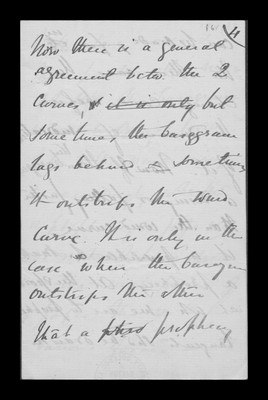 16. 4
Now there is a general
agreement betw. the 2
curves, & it is only but
sometimes the baroggram
lags behind & sometimes
it outstrips the wind
curve. It is only in the
case when the barogm
outstrips the other
that a prophecy